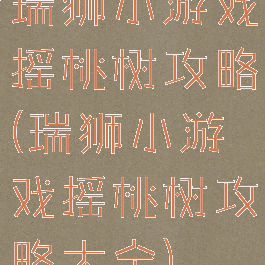 瑞狮小游戏
摇桃树攻略
(瑞狮小游
戏摇桃树攻
略大全)